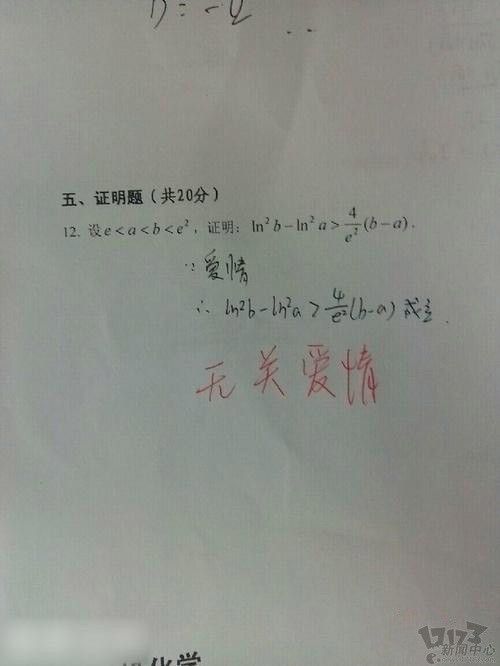 五、证明题（共20分）
12. 设e<a<b<e²，证明：ln²b−ln²a>\frac{4}{e²}(b−a).
∵ 爱情
∴ ln²b−ln²a>\frac{4}{e²}(b−a) 成立.
无关爱情
化学
17173
新闻中心